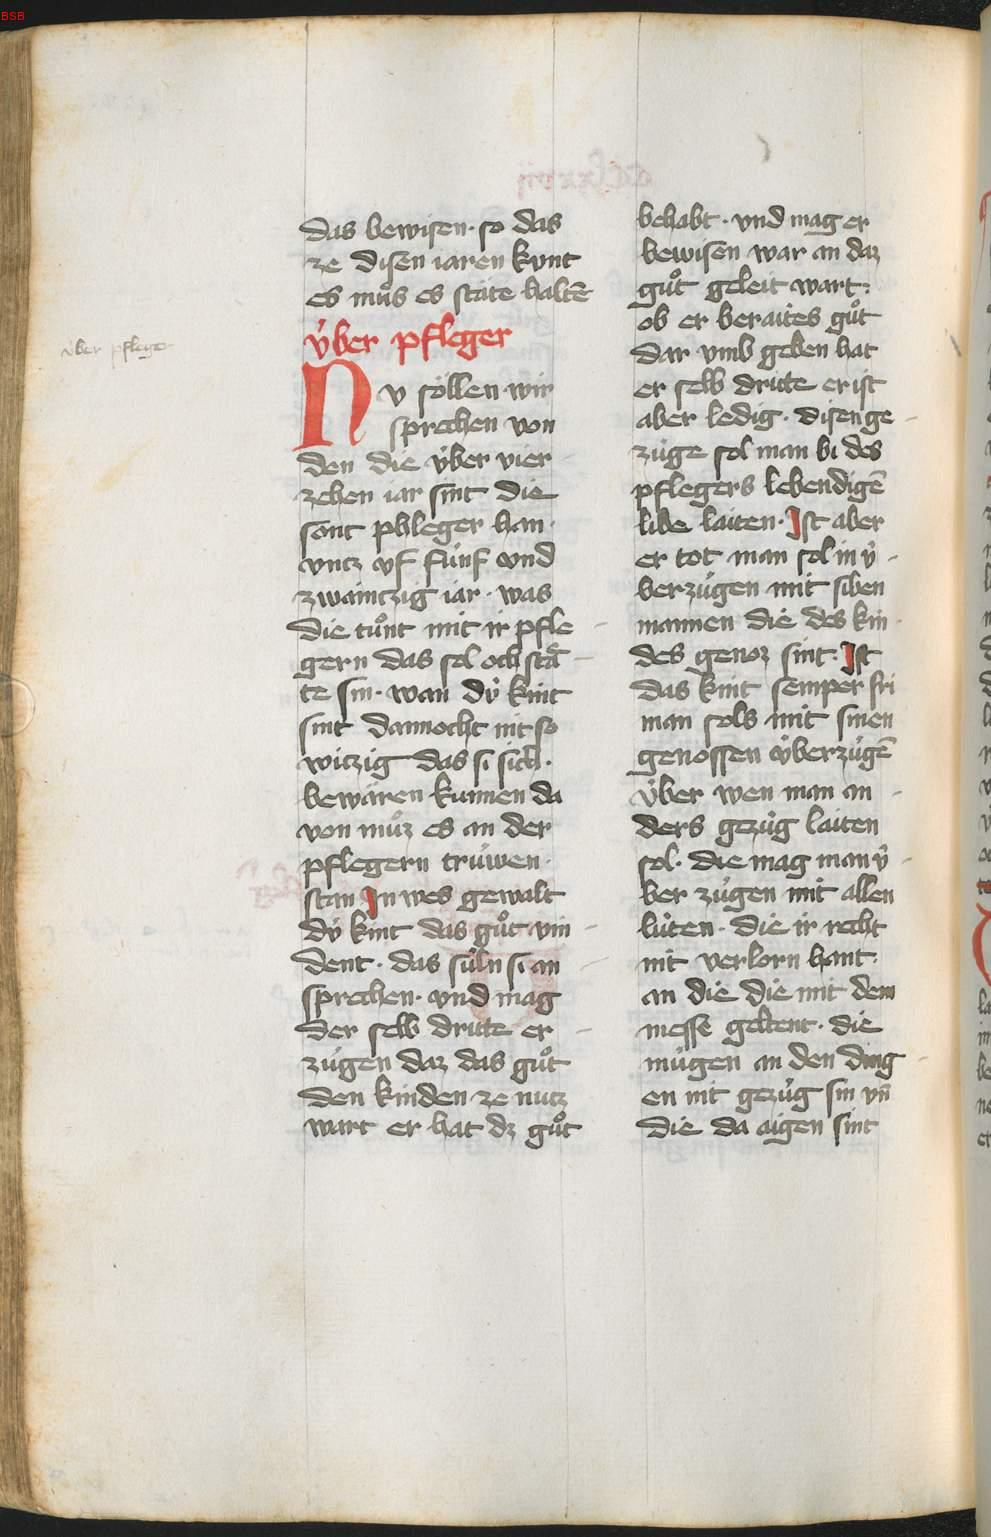 BSB
das bewisen · so das
ze disen iaren kvnt
es mͦus es stäte haltē
v̓ber pfleger
v̓ber pfleger
Nv söllen wir
sprechen von
den die v̓ber vier
zehen iar sint die
sont phleger han ·
vntz vf fúnf vnd
zwaintzig iar · was
die tͦunt mit ir pfle
gern das sol och stä
te sin · wan dv̓ kint
sint dannocht nit so
witzig das si sich ·
bewären kunnen da
von mͦuz es an der
pflegern trúwen ·
stan In wes gewalt
dv̓ kint das gͦut vin
dent · das súln si an
sprechen · vnd mag
der selb dritte er
zúgen daz das gͦut
den kinden ze nutz
wart er hat dz gͦut
behabt · vnd mag er
bewisen war an daz
gͦut geleit wart :
ob er beraites gͦut
dar vmb geben hat
er selb dritte er ist
aber ledig · disen ge
zúge sol man bi des
pflegers lebendigē
libe laiten · Ist aber
er tot man sol in v̓
berzúgen mit siben
mannen die des kin
des genoz sint · Ist
das kint semper fri
man sols mit sinen
genossen v̓berzúgē
v̓ber wen man an
ders gezúg laiten
sol · die mag man v̓
ber zúgen mit allen
lúten · die ir recht
nit verlorn hant ·
an die die mit dem
messe geltent · die
múgen an den ding
en nit gezúg sin vn̄
die da aigen sint